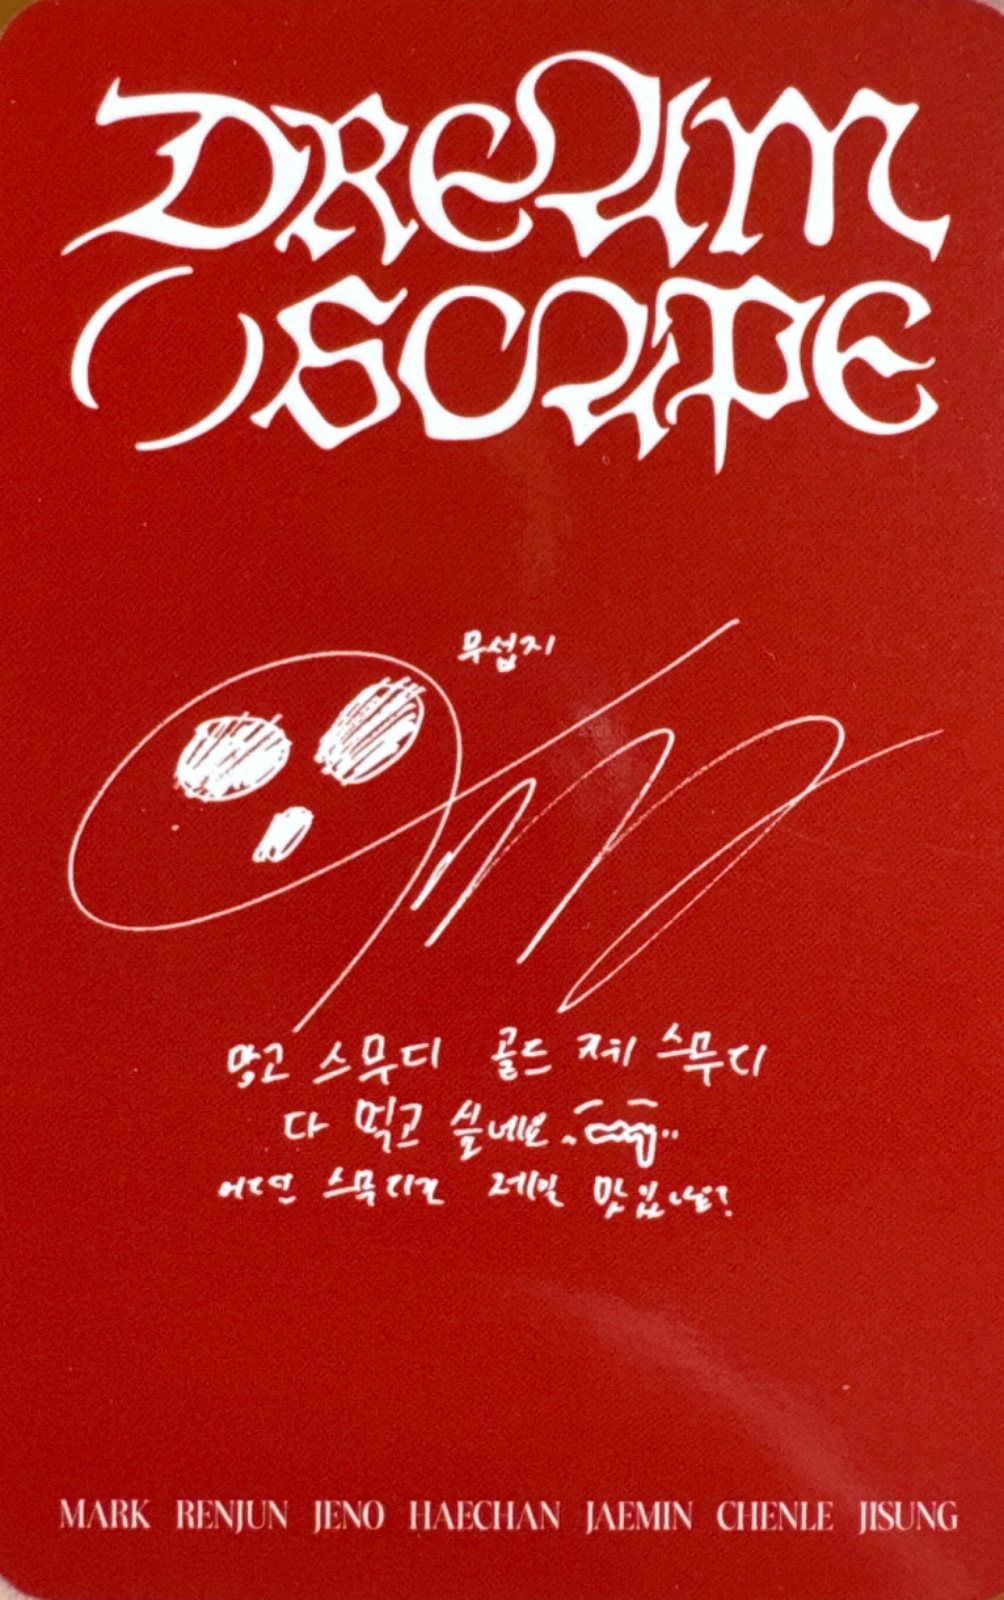 DREAM
( )SCAPE
무섭지
망고 스무디 골드 키위 스무디
다 먹고 싶네요..
어떤 스무디가 제일 맛있나요?
MARK RENJUN JENO HAECHAN JAEMIN CHENLE JISUNG